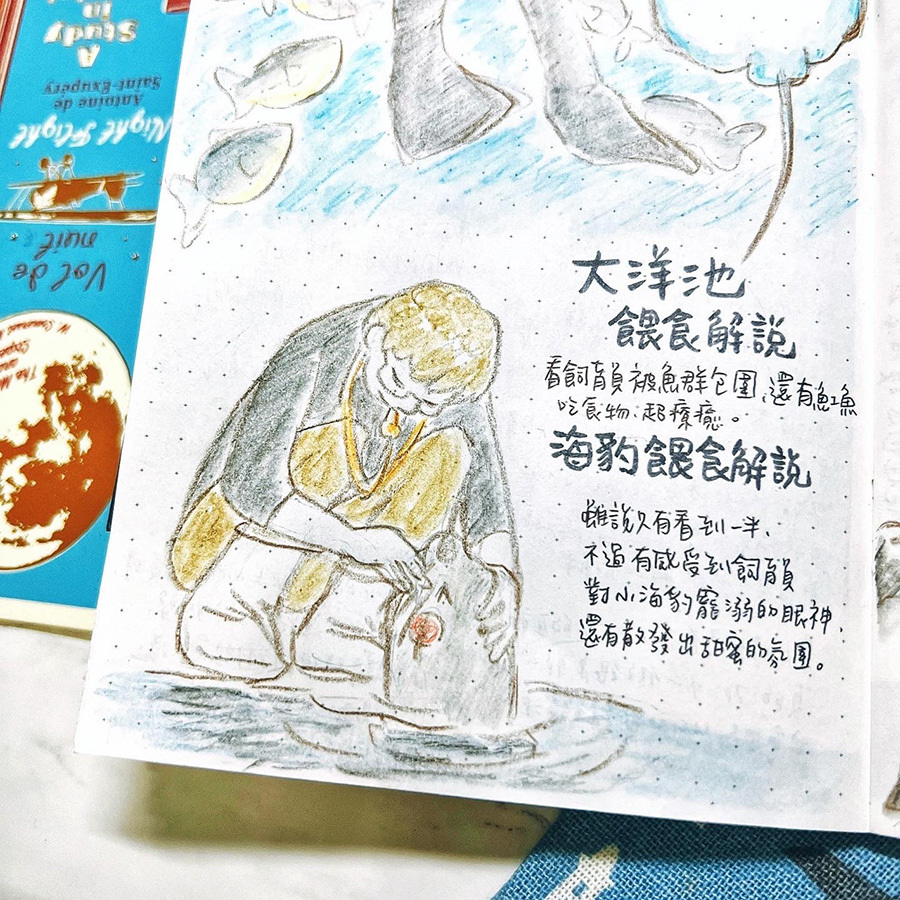 A
Study
in
Antoine de
Saint-Exupéry
Night Flight
Vol de
nuit
大洋池
餵食解說
看飼育員被魚群包圍、還有魟魚
吃食物、超療癒。
海豹餵食解說
雖說只有看到一半、
不過有感受到飼育員
對小海豹寵溺的眼神、
還有散發出甜蜜的氛圍。